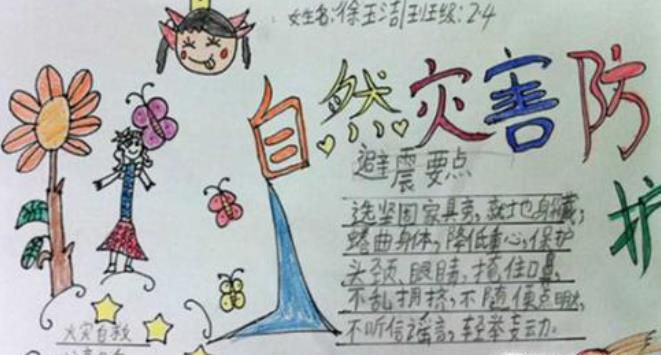 女生名:徐玉洁 班级:2.4
自然灾害防护
避震要点
选坚固家具旁,就地身藏,
蜷曲身体,降低重心,保护
头颈、眼睛,掩住口鼻,
不乱拥挤,不随便点明火,
不听信谣言,轻举妄动。
火灾自救